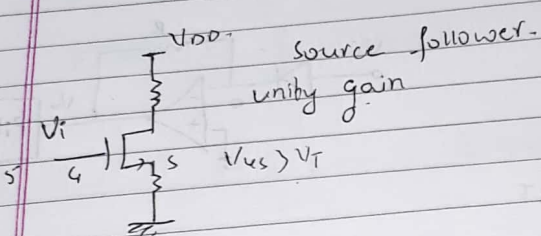 VDD.
source follower.
unity gain
Vi
5
G
S
VGS > VT